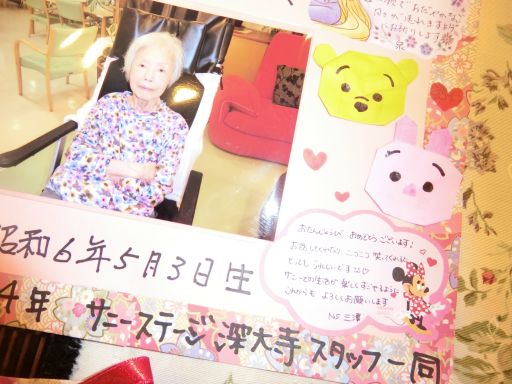 お祈りします
泉
おたんじょうび おめでとうございます!
お話ししてくれたり、ニコニコ 笑ってくれたり
とっても うれしいです
サニーでの生活が 楽しくすごせるように
これからも よろしくお願いします
NS 三澤
昭和6年5月3日生
4年 サニーステージ 深大寺 スタッフ一同